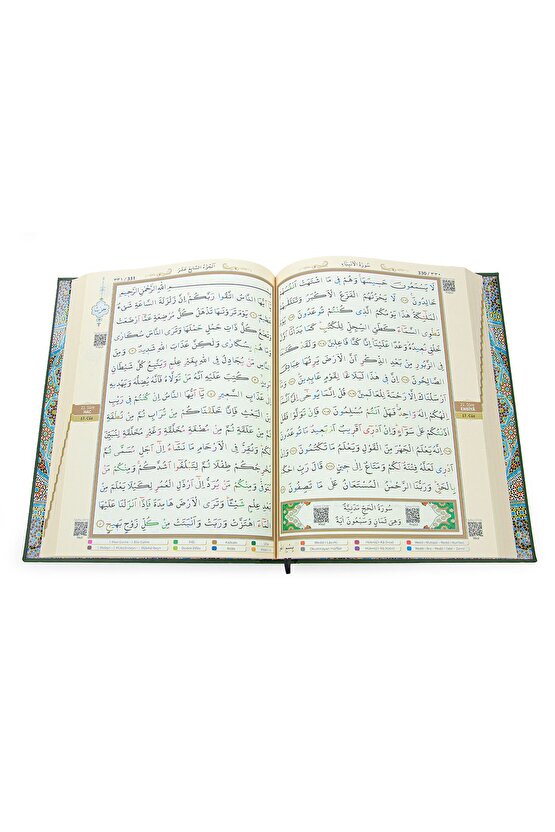 ٣٣٠ / 330
سُورَةُ الْاَنْبِيَاءِ
لَا يَسْمَعُونَ حَسِيسَهَا وَهُمْ فِي مَا اشْتَهَتْ اَنْفُسُهُمْ
خَالِدُونَ ﴿١٠٢﴾ لَا يَحْزُنُهُمُ الْفَزَعُ الْاَكْبَرُ وَتَتَلَقّٰيهُمُ
الْمَلٰٓئِكَةُ هٰذَا يَوْمُكُمُ الَّذِي كُنْتُمْ تُوعَدُونَ ﴿١٠٣﴾ يَوْمَ
نَطْوِي السَّمَاءَ كَطَيِّ السِّجِلِّ لِلْكُتُبِ كَمَا بَدَأْنَا اَوَّلَ
خَلْقٍ نُعِيدُهُ وَعْدًا عَلَيْنَا اِنَّا كُنَّا فَاعِلِينَ ﴿١٠٤﴾ وَلَقَدْ كَتَبْنَا
فِي الزَّبُورِ مِنْ بَعْدِ الذِّكْرِ اَنَّ الْاَرْضَ يَرِثُهَا عِبَادِيَ
الصَّالِحُونَ ﴿١٠٥﴾ اِنَّ فِي هٰذَا لَبَلَاغًا لِقَوْمٍ عَابِدِينَ ﴿١٠٦﴾ وَمَا
اَرْسَلْنَاكَ اِلَّا رَحْمَةً لِلْعَالَمِينَ ﴿١٠٧﴾ قُلْ اِنَّمَا يُوحٰى اِلَيَّ اَنَّمَا
اِلٰهُكُمْ اِلٰهٌ وَاحِدٌ فَهَلْ اَنْتُمْ مُسْلِمُونَ ﴿١٠٨﴾ فَاِنْ تَوَلَّوْا فَقُلْ
اٰذَنْتُكُمْ عَلٰى سَوَاءٍ وَاِنْ اَدْرِي اَقَرِيبٌ اَمْ بَعِيدٌ مَا تُوعَدُونَ ﴿١٠٩﴾
اِنَّهُ يَعْلَمُ الْجَهْرَ مِنَ الْقَوْلِ وَيَعْلَمُ مَا تَكْتُمُونَ ﴿١١٠﴾ وَاِنْ
اَدْرِي لَعَلَّهُ فِتْنَةٌ لَكُمْ وَمَتَاعٌ اِلٰى حِينٍ ﴿١١١﴾ قَالَ رَبِّ احْكُمْ
بِالْحَقِّ وَرَبُّنَا الرَّحْمٰنُ الْمُسْتَعَانُ عَلٰى مَا تَصِفُونَ ﴿١١٢﴾
سُورَةُ الْحَجِّ مَدَنِيَّةٌ
وَهِيَ ثَمَانٍ وَسَبْعُونَ اٰيَةً
ENBİYÂ
17. Cüz
331 / ٣٣١
اَلْجُزْءُ السَّابِعُ عَشَرَ
بِسْمِ اللّٰهِ الرَّحْمٰنِ الرَّحِيمِ
يَا اَيُّهَا النَّاسُ اتَّقُوا رَبَّكُمْ اِنَّ زَلْزَلَةَ السَّاعَةِ شَيْءٌ
عَظِيمٌ ﴿١﴾ يَوْمَ تَرَوْنَهَا تَذْهَلُ كُلُّ مُرْضِعَةٍ عَمَّا اَرْضَعَتْ
وَتَضَعُ كُلُّ ذَاتِ حَمْلٍ حَمْلَهَا وَتَرَى النَّاسَ سُكَارٰى
وَمَا هُمْ بِسُكَارٰى وَلٰكِنَّ عَذَابَ اللّٰهِ شَدِيدٌ ﴿٢﴾ وَمِنَ
النَّاسِ مَنْ يُجَادِلُ فِي اللّٰهِ بِغَيْرِ عِلْمٍ وَيَتَّبِعُ كُلَّ شَيْطَانٍ
مَرِيدٍ ﴿٣﴾ كُتِبَ عَلَيْهِ اَنَّهُ مَنْ تَوَلَّاهُ فَاَنَّهُ يُضِلُّهُ وَيَهْدِيهِ
اِلٰى عَذَابِ السَّعِيرِ ﴿٤﴾ يَا اَيُّهَا النَّاسُ اِنْ كُنْتُمْ فِي رَيْبٍ
مِنَ الْبَعْثِ فَاِنَّا خَلَقْنَاكُمْ مِنْ تُرَابٍ ثُمَّ مِنْ نُطْفَةٍ
ثُمَّ مِنْ عَلَقَةٍ ثُمَّ مِنْ مُضْغَةٍ مُخَلَّقَةٍ وَغَيْرِ مُخَلَّقَةٍ
لِنُبَيِّنَ لَكُمْ وَنُقِرُّ فِي الْاَرْحَامِ مَا نَشَاءُ اِلٰى اَجَلٍ مُسَمًّى
ثُمَّ نُخْرِجُكُمْ طِفْلًا ثُمَّ لِتَبْلُغُوا اَشُدَّكُمْ وَمِنْكُمْ مَنْ
يُتَوَفّٰى وَمِنْكُمْ مَنْ يُرَدُّ اِلٰى اَرْذَلِ الْعُمُرِ لِكَيْلَا يَعْلَمَ مِنْ
بَعْدِ عِلْمٍ شَيْئًا وَتَرَى الْاَرْضَ هَامِدَةً فَاِذَا اَنْزَلْنَا عَلَيْهَا
الْمَاءَ اهْتَزَّتْ وَرَبَتْ وَاَنْبَتَتْ مِنْ كُلِّ زَوْجٍ بَهِيجٍ ﴿٥﴾
HAC
17. Cüz